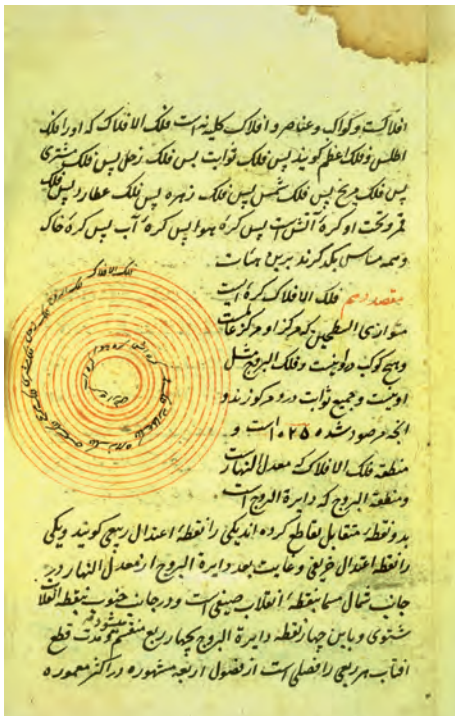 افلاکست و کواکب و عناصر و افلاک کلیه نه است فلک الافلاک که اورا فلک
اطلس و فلک اعظم کویند پس فلک ثوابت پس فلک زحل پس فلک مشتری
پس فلک مریخ پس فلک شمس پس فلک زهره پس فلک عطارد پس فلک
قمر و تحت او کرهٔ آتش است پس کرهٔ هوا پس کرهٔ آب پس کرهٔ خاک
و همه مماس یکدیکرند برین هیئات
مقصد دهم فلک الافلاک کره است
متوازی السطحین که مرکز او مرکز عالمست
و هیچ کوکب درو نیست و فلک البروج مثل
اوست و جمیع ثوابت درو مرکوزند و
انچه مرصود شده ۱۰۲۵ است و
منطقه فلک الافلاک معدل النهار
و منطقة البروج که دایرة البروج است
بدو نقطهٔ متقابل تقاطع کرده اند یکی را نقطهٔ اعتدال ربیعی کویند و یکی
را نقطهٔ اعتدال خریفی و غایت بعد دایرة البروج از معدل النهار در
جانب شمال مسما بنقطهٔ انقلاب صیفی است و در جانب جنوب بنقطهٔ انقلاب
شتوی و باین چهار نقطه دایرة البروج بچهار ربع منقسم میشود و مدت قطع
افتاب هر ربعی را فصلی است از فصول اربعه مشهوره در اکثر معموره
فلک الافلاک